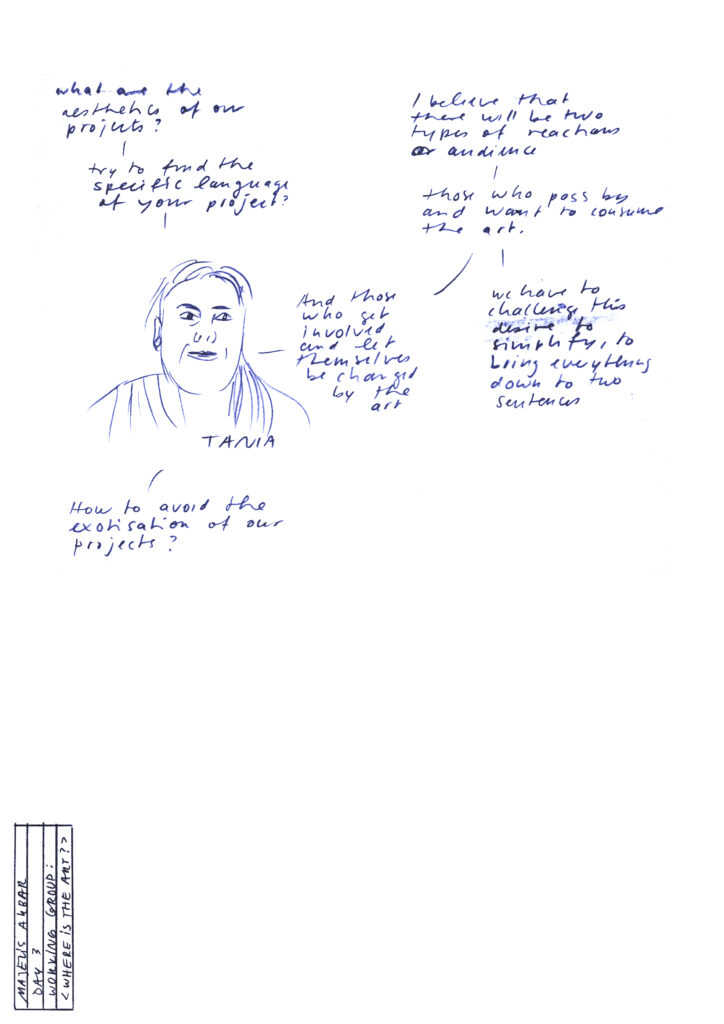 what are the
aesthetics of our
projects?
try to find the
specific language
of your project?
I believe that
there will be two
types of reactions
or audience
those who pass by
and want to consume
the art.
And those
who get
involved
and let
themselves
be changed
by the
art
we have to
challenge this
desire to
simplify, to
bring everything
down to two
sentences
TANIA
How to avoid the
exotisation of our
projects?
MAJELIS AKBAR
DAY 3
WORKING GROUP:
<WHERE IS THE ART?>